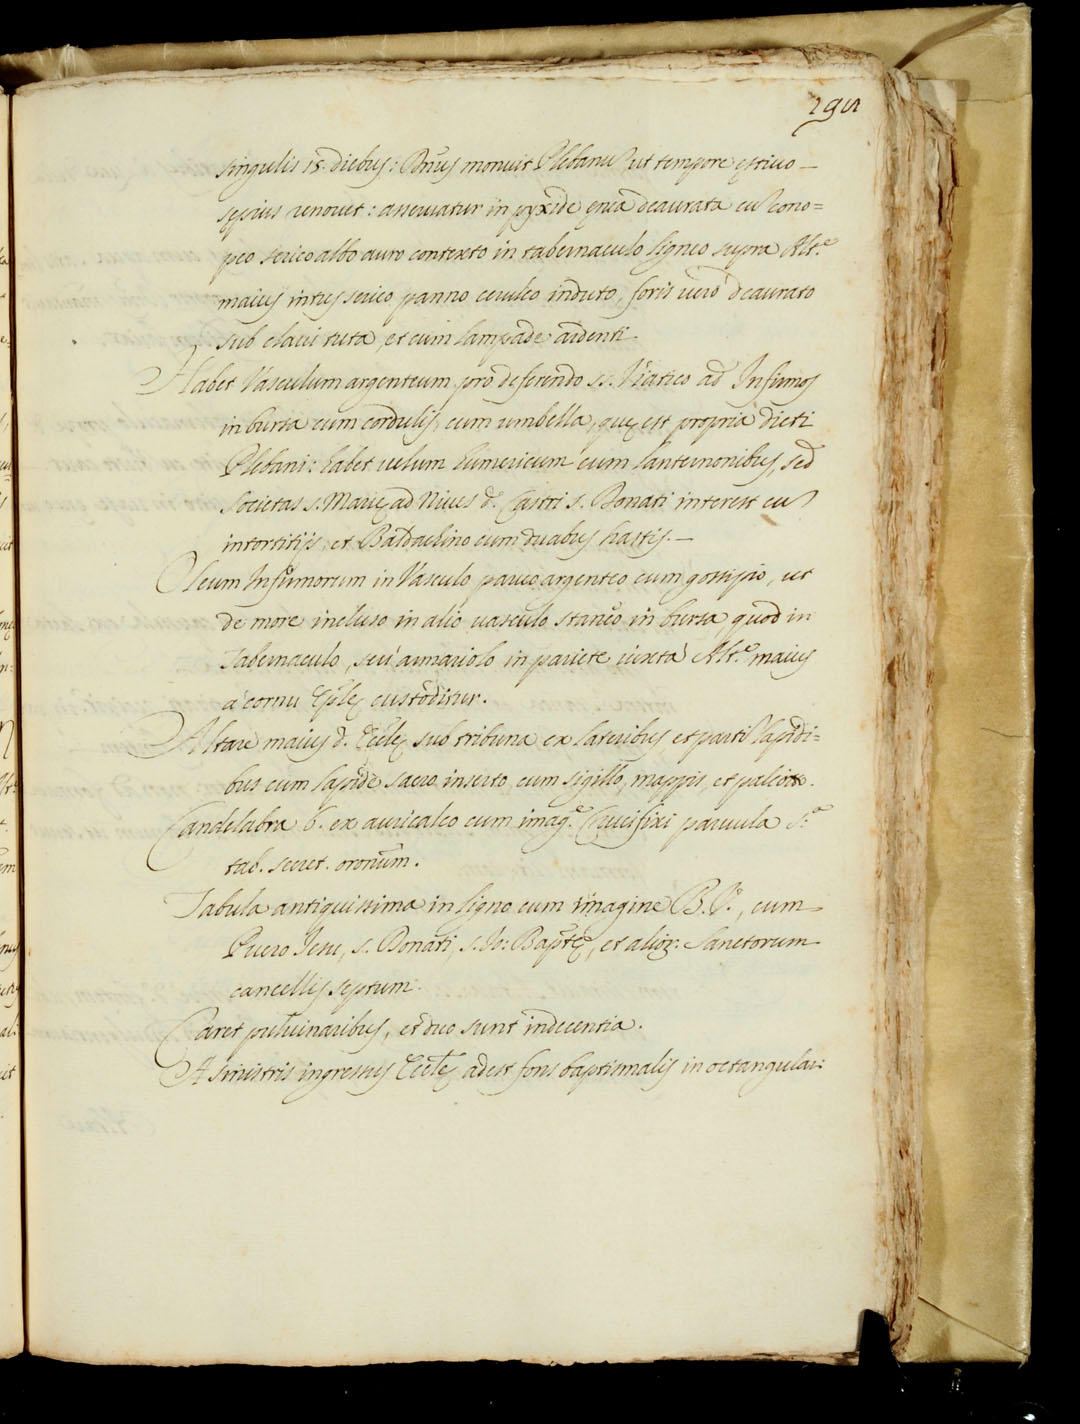 singulis 15. diebus: Dñus monuit Plebanũ ut tempore ęstiuo
sępius renouet: asseruatur in pyxide ęnea deaurata cũ cono=
peo serico albo auro contexto in tabernaculo ligneo supra Alt.e
maius intus serico panno ceruleo induto, foris uero deaurato
sub claui tuta, et cum lampade ardenti.
Habet Vasculum argenteum pro deferendo ss. Viatico ad Infirmos
in bursa cum cordulis, cum umbella, quę est propria dicti
Plebani: habet uelum humericum cum lanternonibus, sed
Societas s. Marię ad Niues d. Castri s. Donati interest cũ
intortitijs, et Baldachino cum duabus hastis.
Oleum Infirmorum in Vasculo paruo argenteo cum gossipio, ut
de more incluso in alio uasculo staneo in bursa quod in
Tabernaculo, seu armariolo in pariete iuxta Alt.e maius
a cornu Eplę custoditur.
Altare maius d. Ecclę sub tribuna ex lateribus et partĩ lapidi=
bus cum lapide sacro inserto, cum sigillo, mappis, et paliotto.
Candelabra 6. ex auricalco cum imag.e Crucifixi paruula s.a
tab. secret. oronum.
Tabula antiquissima in ligno cum imagine B. V.e, cum
Puero Iesu, s. Donati, s. Io: Baptę, et alior: Sanctorum
cancellis septum.
Caret puluinaribus, et duo sunt indecentia.
A sinistris ingressus Ecclę adest fons baptismalis in octangulari